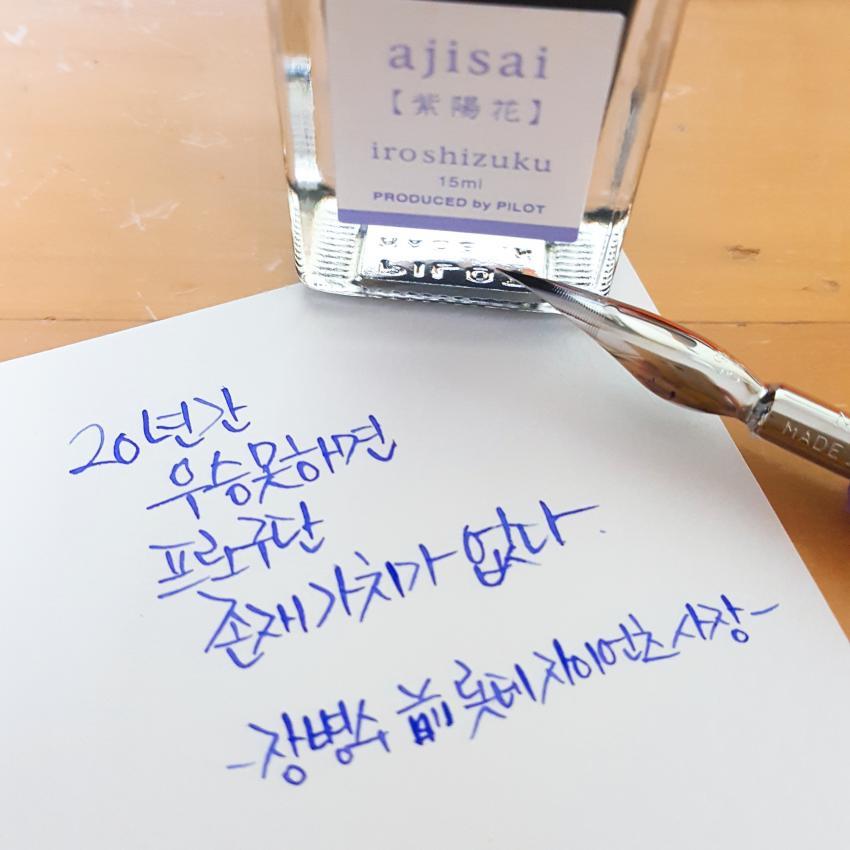 ajisai
【紫陽花】
iroshizuku
15ml
PRODUCED by PILOT
PILOT
MADE
20년간
우승못하면
프로구단
존재가치가 없다.
-장병수 前 롯데자이언츠사장-